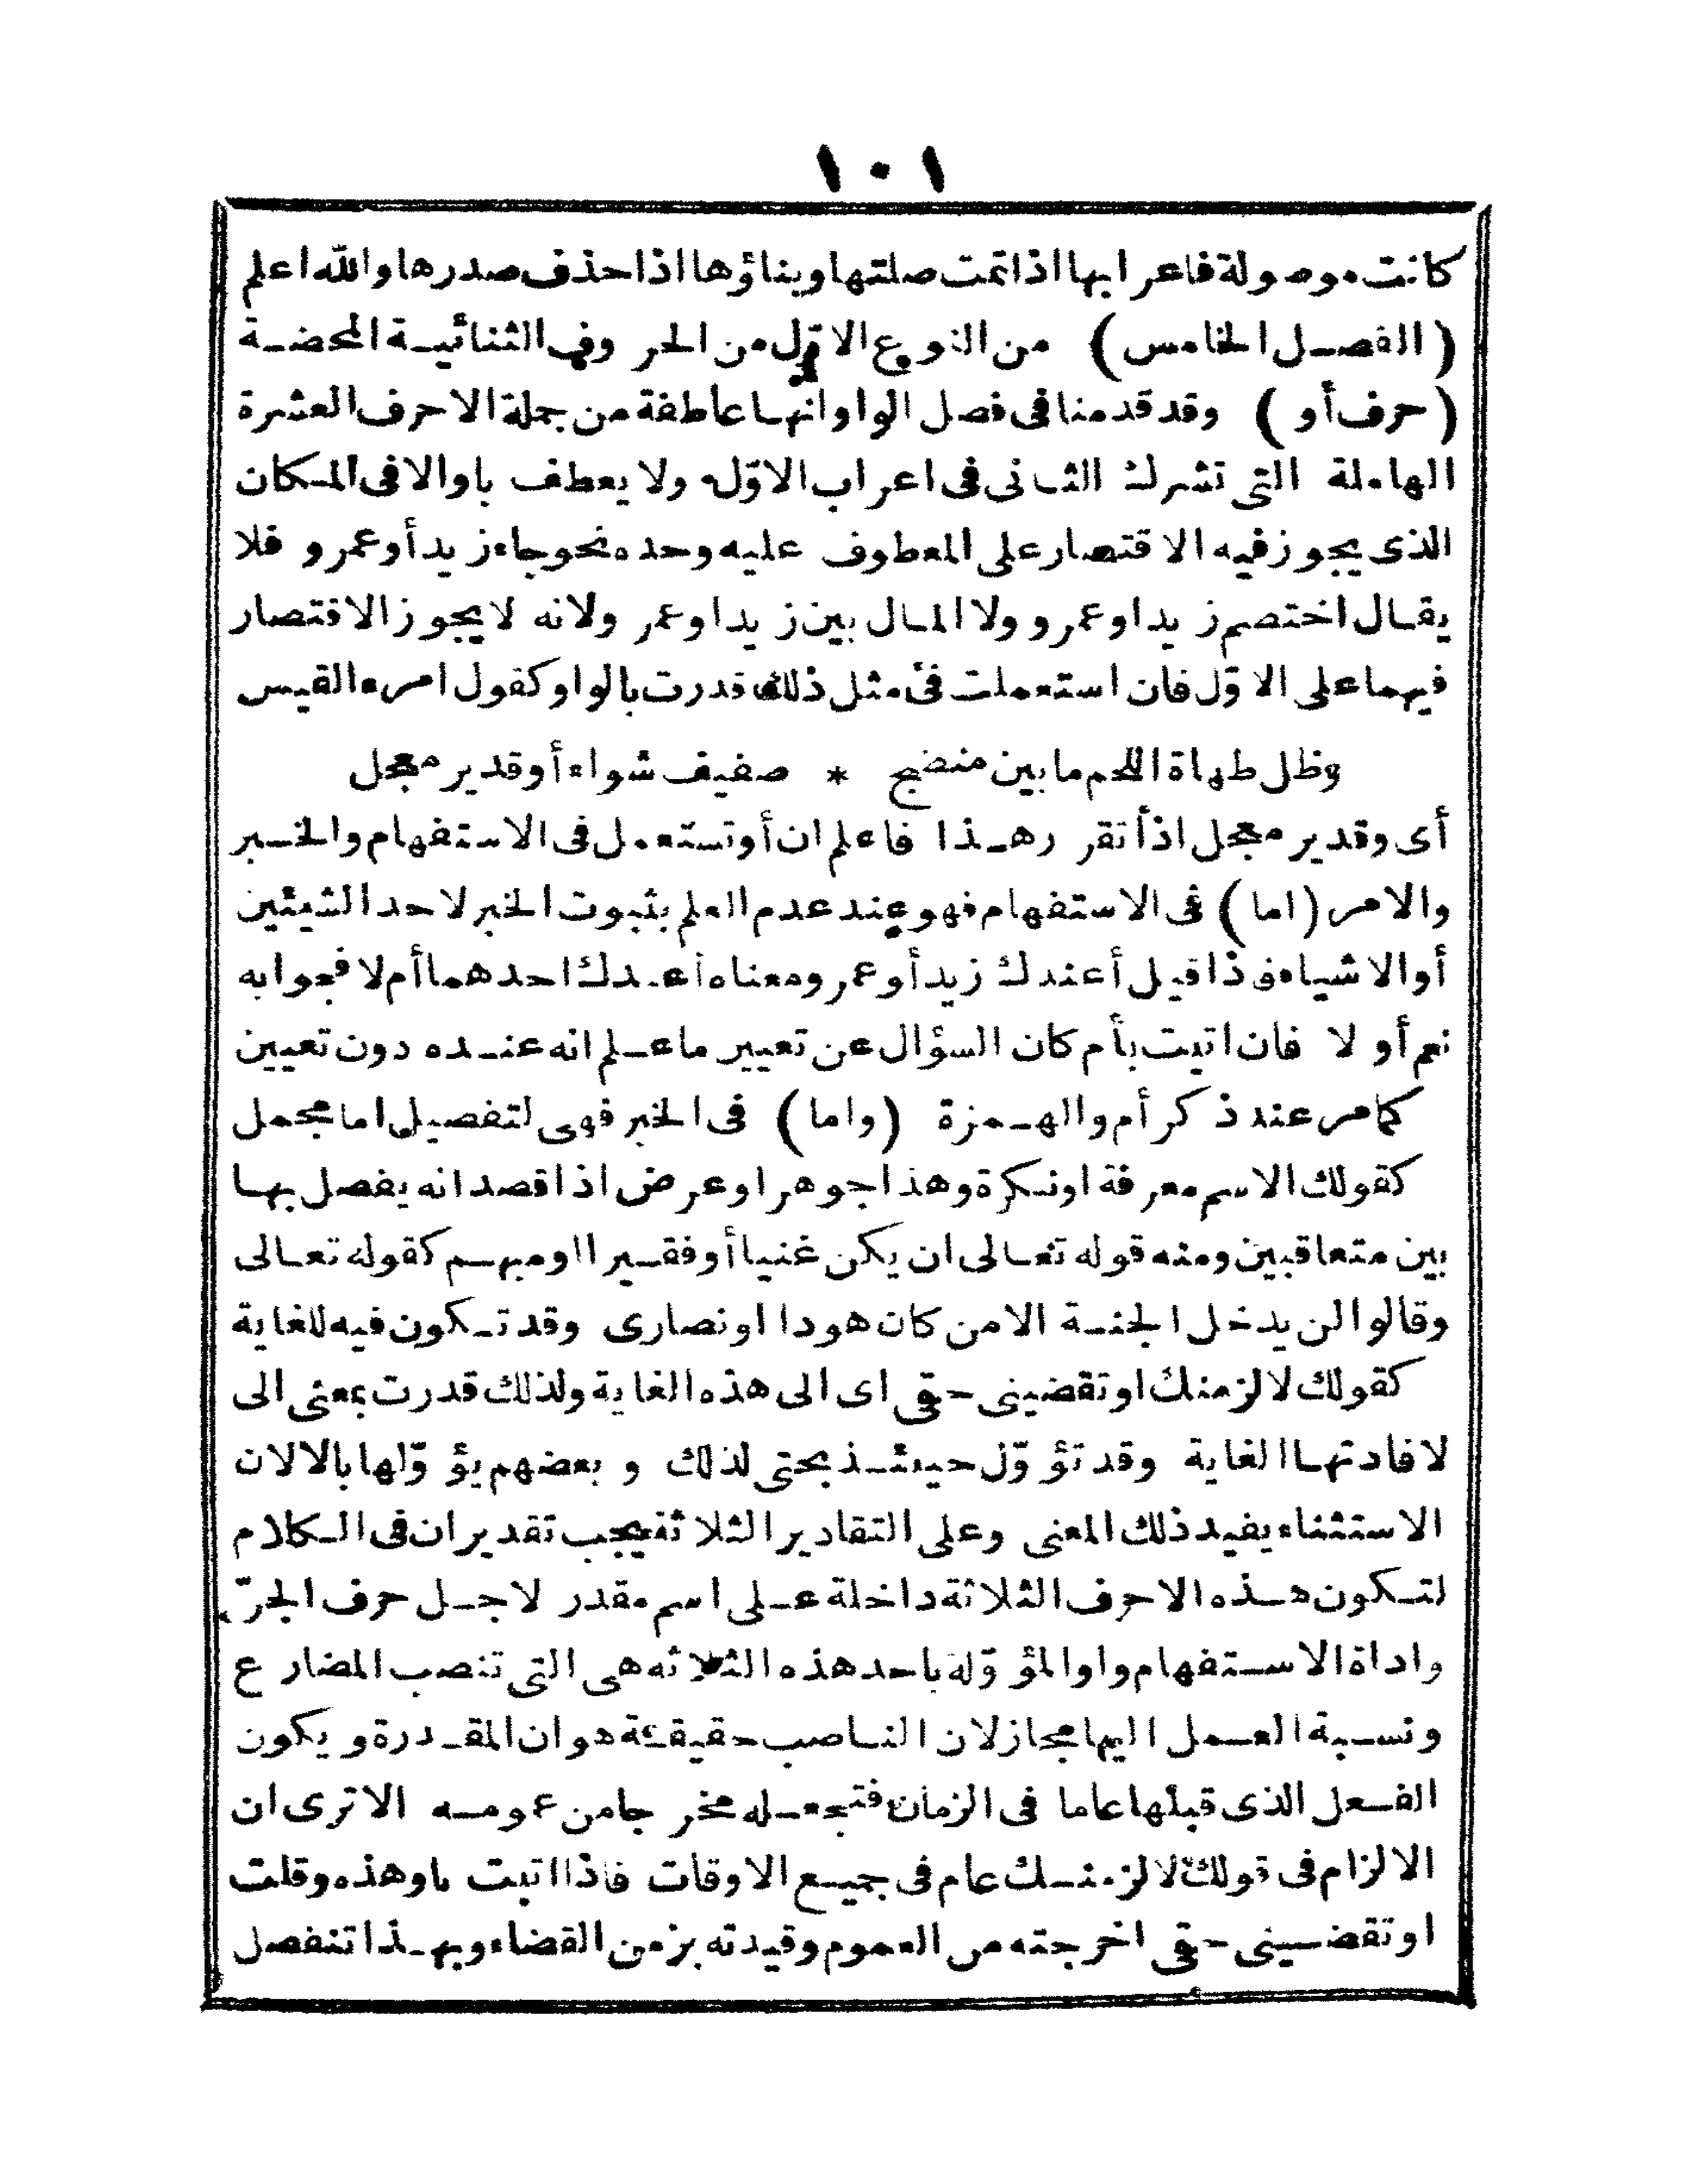 ١٠١
كانت موصولة فاعرابها اذا تمت صلتها وبناؤها اذا حذف صدرها والله اعلم
(الفصل الخامس) من النوع الاوّل من الحر وفى الثنائية المحضة
(حرف أو) وقد قدمنا فى فصل الواو انها عاطفة من جملة الاحرف العشرة
الهاملة التى تشرك الثانى فى اعراب الاوّل ولا يعطف باو الا فى المكان
الذى يجوز فيه الاقتصار على المعطوف عليه وحده نحو جاء زيد أو عمرو فلا
يقال اختصم زيد او عمرو ولا المال بين زيد او عمر ولانه لا يجوز الاقتصار
فيهما على الاوّل فان استعملت فى مثل ذلك قدرت بالواو كقول امرء القيس
وظل طهاة اللحم ما بين منضج * صفيف شواء أو قدير معجل
أى وقدير معجل اذا تقرر هذا فاعلم ان أو تستعمل فى الاستفهام والخبر
والامر (اما) فى الاستفهام فهو عند عدم العلم بثبوت الخبر لاحد الشيئين
أو الاشياء فذا قيل أعندك زيد أو عمر ومعناه أعندك احدهما أم لا فجوابه
نعم أو لا فان اتيت بأم كان السؤال عن تعيير ما علم انه عنده دون تعيين
كما مر عند ذكر أم والهمزة (واما) فى الخبر فهى لتفصيل اما مجمل
كقولك الاسم معرفة او نكرة وهذا جوهر او عرض اذا قصد انه يفصل بها
بين متعاقبين ومنه قوله تعالى ان يكن غنيا أو فقيرا او مبهم كقوله تعالى
وقالوا لن يدخل الجنة الا من كان هودا او نصارى وقد تكون فيه للغاية
كقولك لالزمنك او تقضينى حقى اى الى هذه الغاية ولذلك قدرت بمعنى الى
لافادتها الغاية وقد تؤوّل حينئذ بحتى لذلك وبعضهم يؤوّلها بالا لان
الاستثناء يفيد ذلك المعنى وعلى التقادير الثلاثة يجب تقدير ان فى الكلام
لتكون هذه الاحرف الثلاثة داخلة على اسم مقدر لاجل حرف الجرّ
واداة الاستفهام واو المؤوّلة باحد هذه الثلاثه هى التى تنصب المضارع
ونسبة العمل اليها مجاز لان الناصب حقيقة هو ان المقدرة ويكون
الفعل الذى قبلها عاما فى الزمان فتجعله مخرجا من عمومه الا ترى ان
الالزام فى قولك لالزمنك عام فى جميع الاوقات فاذا اتيت باو هذه وقلت
او تقضينى حقى اخرجته من العموم وقيدته بزمن القضاء وبهذا تنفصل